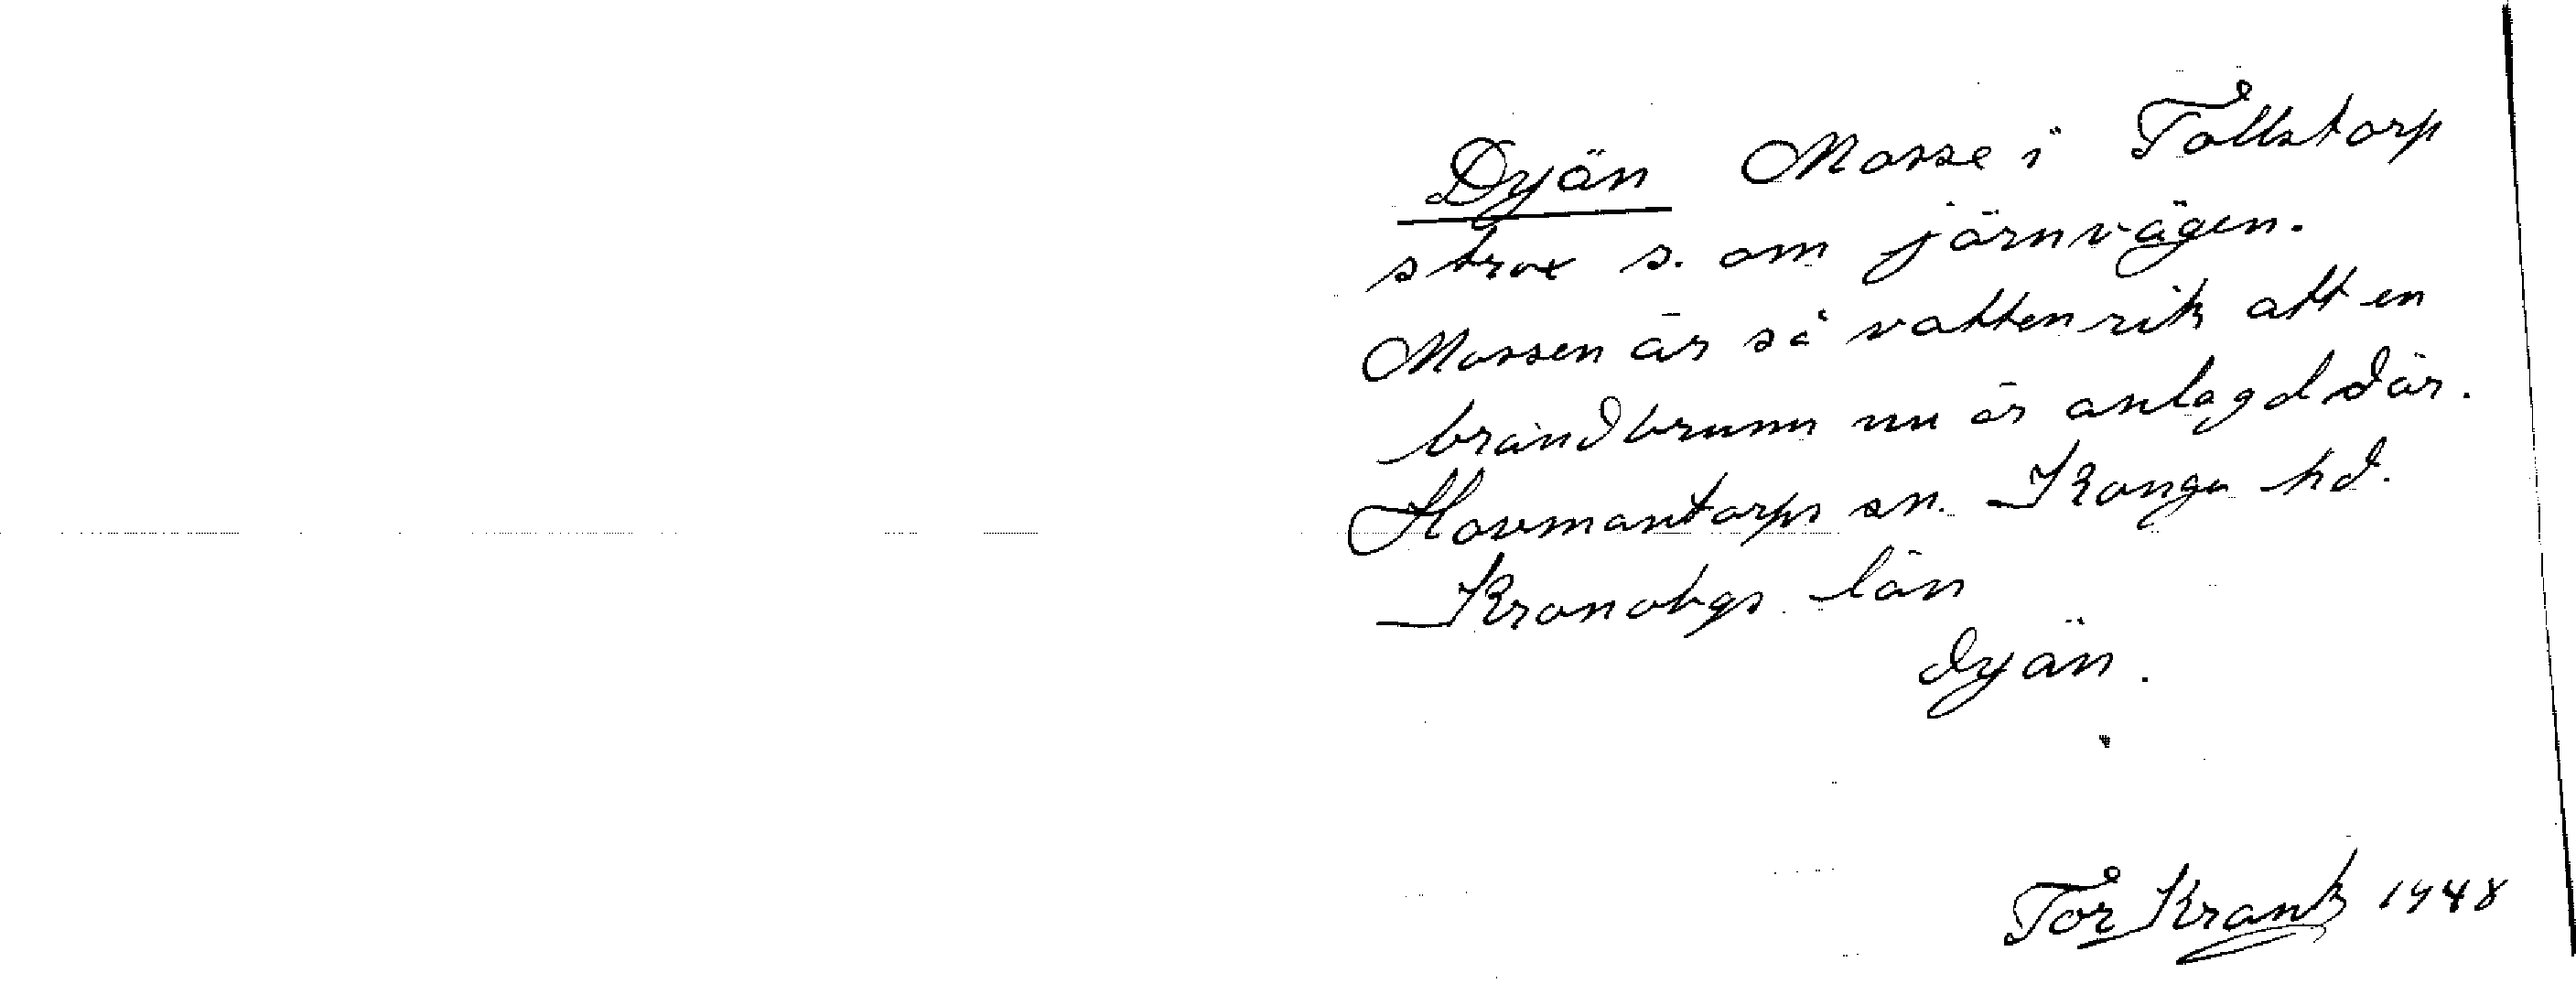 Dyän Mosse i Tollstorp
strax s. om järnvägen.
Mossen är så vattenrik att en
brandbrunn nu är anlagd där.
Hovmantorps sn. Konga hd.
Kronobgs län
dyän.
Tor Krank 1948